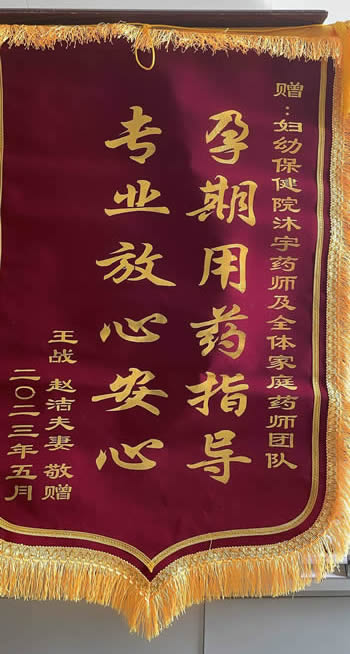 赠：妇幼保健院沐宇药师及全体家庭药师团队
孕期用药指导
专业放心安心
王战 赵洁夫妻 敬赠
二〇二三年五月